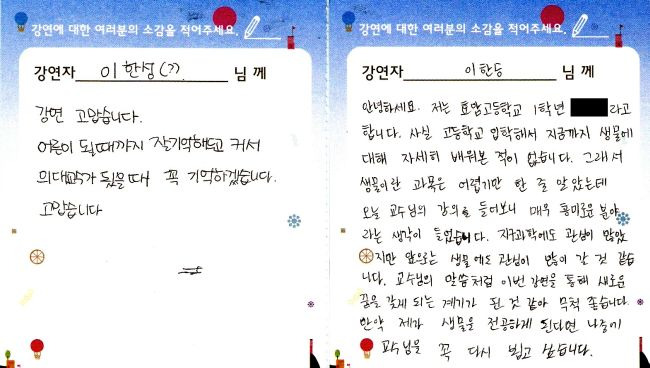 강연에 대한 여러분의 소감을 적어주세요.
강연자 이한성(?) 님께
강연 고맙습니다.
어른이 될때까지 잘기억해두고 커서
의대교수가 됬을때 꼭 기억하겠습니다.
고맙습니다
강연에 대한 여러분의 소감을 적어주세요.
강연자 이한승 님께
안녕하세요. 저는 효암고등학교 1학년 라고
합니다. 사실 고등학교 입학해서 지금까지 생물에
대해 자세히 배워본 적이 없습니다. 그래서
생물이란 과목은 어렵기만 한 줄 알았는데
오늘 교수님의 강의를 들어보니 매우 흥미로운 분야
라는 생각이 들었습니다. 지구과학에도 관심이 많았
지만 앞으로는 생물에도 관심이 많이 갈 것 같습
니다. 교수님의 말씀처럼 이번 강연을 통해 새로운
꿈을 갖게 되는 계기가 된 것 같아 무척 좋습니다
만약 제가 생물을 전공하게 된다면 나중에
교수님을 꼭 다시 뵙고 싶습니다.